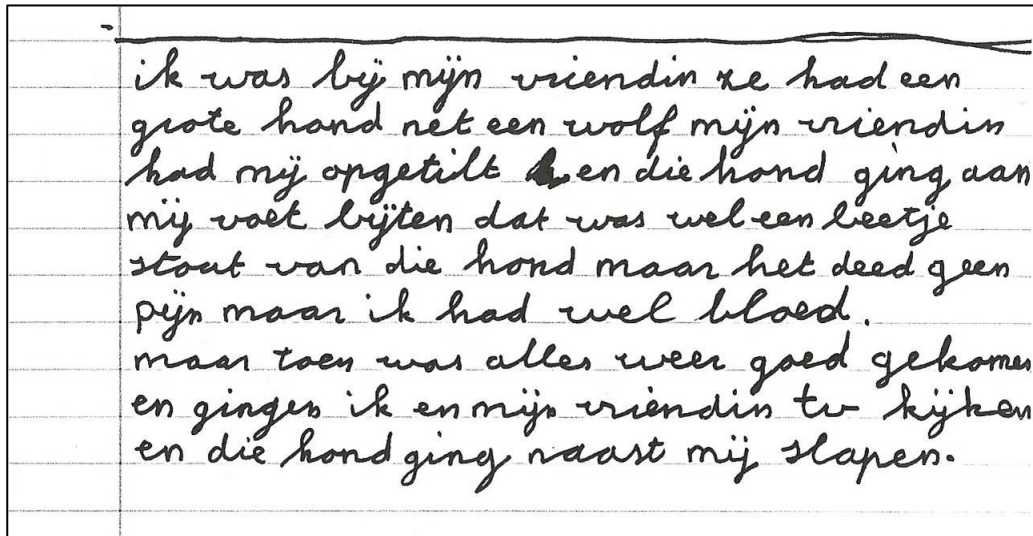 ik was bij mijn vriendin ze had een
grote hond net een wolf mijn vriendin
had mij opgetilt en die hond ging aan
mij voet bijten dat was wel een beetje
stout van die hond maar het deed geen
pijn maar ik had wel bloed.
maar toen was alles weer goed gekomen
en gingen ik en mijn vriendin tv kijken
en die hond ging naast mij slapen.